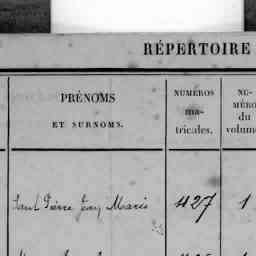 RÉPERTOIRE
PRÉNOMS
ET SURNOMS.
NUMÉROS
ma-
tricules.
NU-
MÉRO
du
volume
Paul Pierre Jean Marie 427 1